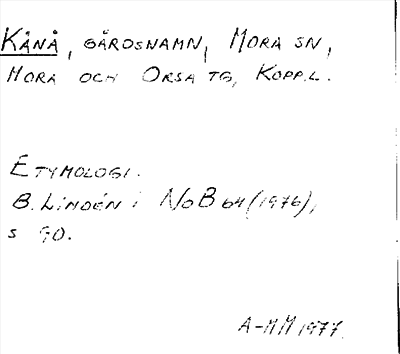 KÅNÅ, GÅRDSNAMN, MORA SN,
MORA OCH ORSA TG, KOPP.L.
ETYMOLOGI.
B. LINDÉN i NoB 64 (1976),
s 90.
A-MM 1977.